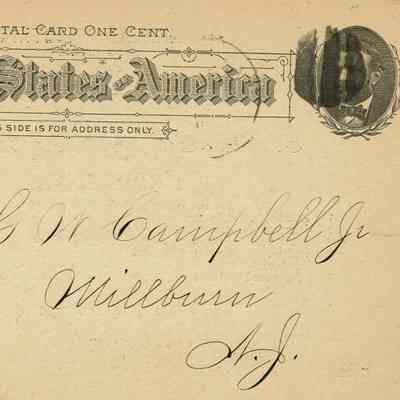 TAL CARD ONE CENT.
States of America
SIDE IS FOR ADDRESS ONLY.
G W Campbell Jr
Millburn
N.J.